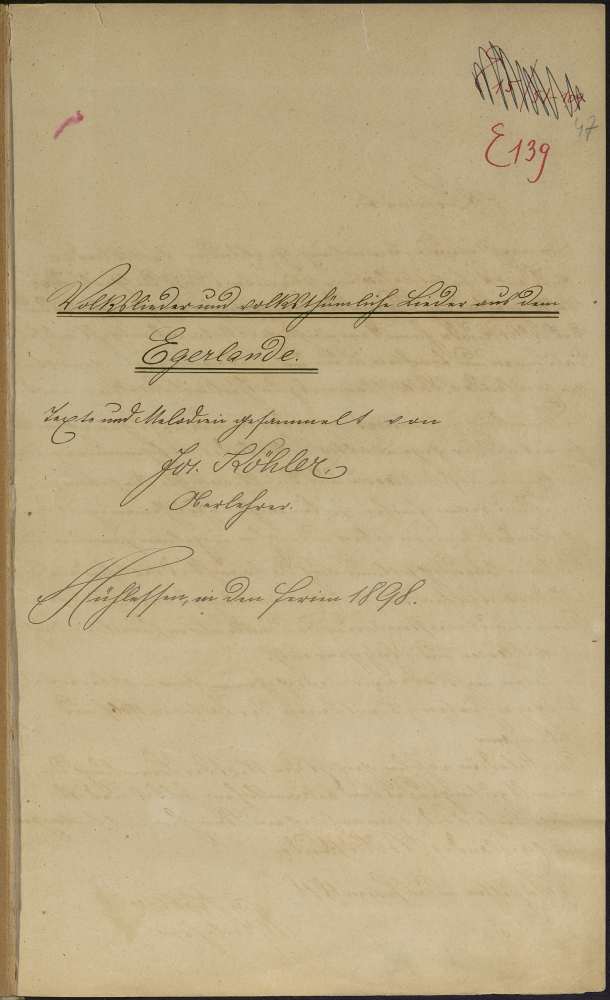 E 139
47
Volkslieder und volksthümliche Lieder aus dem
Egerlande.
Texte und Melodien gesammelt von
Jos. Köhler,
Oberlehrer.
Mühlessen, in den Ferien 1898.